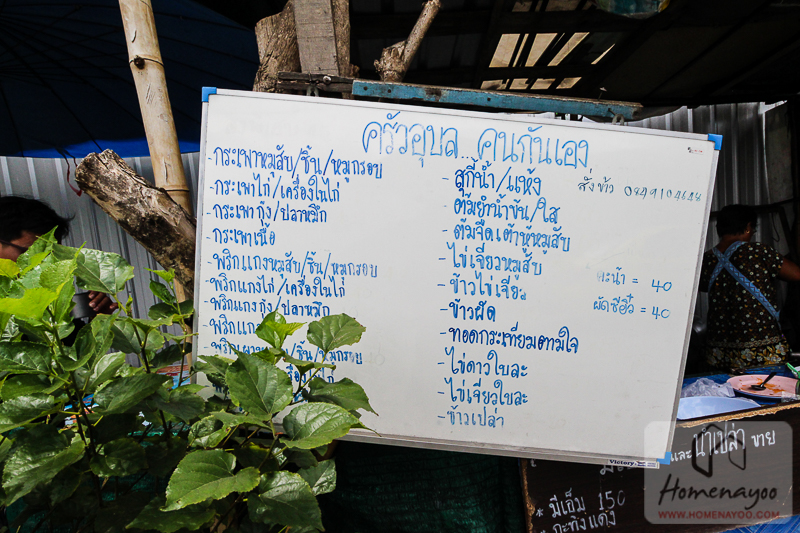 ครัวอุบล คนกันเอง
- กระเพาหมูสับ/ชิ้น/หมูกรอบ
- กระเพาไก่/เครื่องในไก่
- กระเพากุ้ง/ปลาหมึก
- กระเพาเนื้อ
- พริกแกงหมูสับ/ชิ้น/หมูกรอบ
- พริกแกงไก่/เครื่องในไก่
- พริกแกงกุ้ง/ปลาหมึก
- พริกแกง
/ชิ้น/หมูกรอบ
- สุกี้น้ำ/แห้ง
- ต้มยำน้ำข้น/ใส
- ต้มจืดเต้าหู้หมูสับ
- ไข่เจียวหมูสับ
- ข้าวไข่เจียว
- ข้าวผัด
- ทอดกระเทียมตามใจ
- ไข่ดาวใบละ
- ไข่เจียวใบละ
- ข้าวเปล่า
สั่งข้าว 0849104648
คะน้า = 40
ผัดซีอิ๊ว = 40
Victory
และ น้ำเปล่า ขาย
มีเอ็ม 150
กะทิงแดง
Homenayoo
WWW.HOMENAYOO.COM